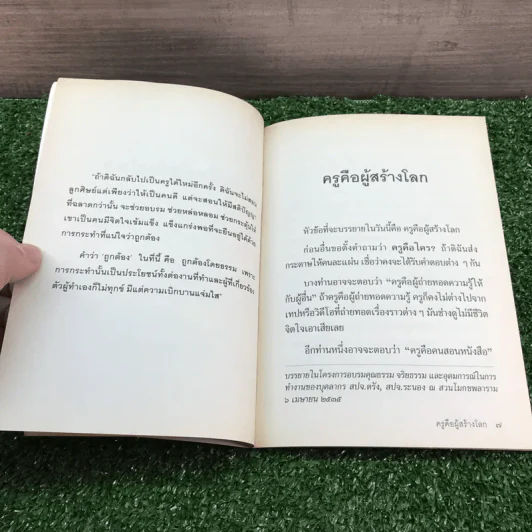 'ถ้าดิฉันกลับไปเป็นครูได้ใหม่อีกครั้ง ดิฉันจะไม่สอน
ลูกศิษย์แต่เพียงว่าให้เป็นคนดี แต่จะสอนให้มีสติปัญญา
ที่ฉลาดกว่านั้น จะช่วยอบรม ช่วยหล่อหลอม ช่วยกระตุ้นให้
เขาเป็นคนมีจิตใจเข้มแข็ง แข็งแกร่งพอที่จะยืนอยู่ได้ด้วย
การกระทำที่แน่ใจว่าถูกต้อง
คำว่า 'ถูกต้อง' ในที่นี้ คือ ถูกต้องโดยธรรม เพราะ
การกระทำนั้นเป็นประโยชน์ทั้งต่องานที่ทำและผู้ที่เกี่ยวข้อง
ตัวผู้ทำเองก็ไม่ทุกข์ มีแต่ความเบิกบานแจ่มใส"
ครูคือผู้สร้างโลก
หัวข้อที่จะบรรยายในวันนี้คือ ครูคือผู้สร้างโลก
ก่อนอื่นขอตั้งคำถามว่า ครูคือใคร? ถ้าดิฉันส่ง
กระดาษให้คนละแผ่น เชื่อว่าคงจะได้รับคำตอบต่าง ๆ กัน
บางท่านอาจจะตอบว่า "ครูคือผู้ถ่ายทอดความรู้ให้
กับผู้อื่น" ถ้าครูคือผู้ถ่ายทอดความรู้ ครูก็คงไม่ต่างไปจาก
เทปหรือวิดีโอที่ถ่ายทอดเรื่องราวต่าง ๆ มันช่างดูไม่มีชีวิต
จิตใจเอาเสียเลย
อีกท่านหนึ่งอาจจะตอบว่า "ครูคือคนสอนหนังสือ"
บรรยายในโครงการอบรมคุณธรรม จริยธรรม และอุดมการณ์ในการ
ทำงานของบุคลากร สปจ.ตรัง, สปจ.ระนอง ณ สวนโมกขพลาราม
๖ เมษายน ๒๕๓๕
ครูคือผู้สร้างโลก ๗